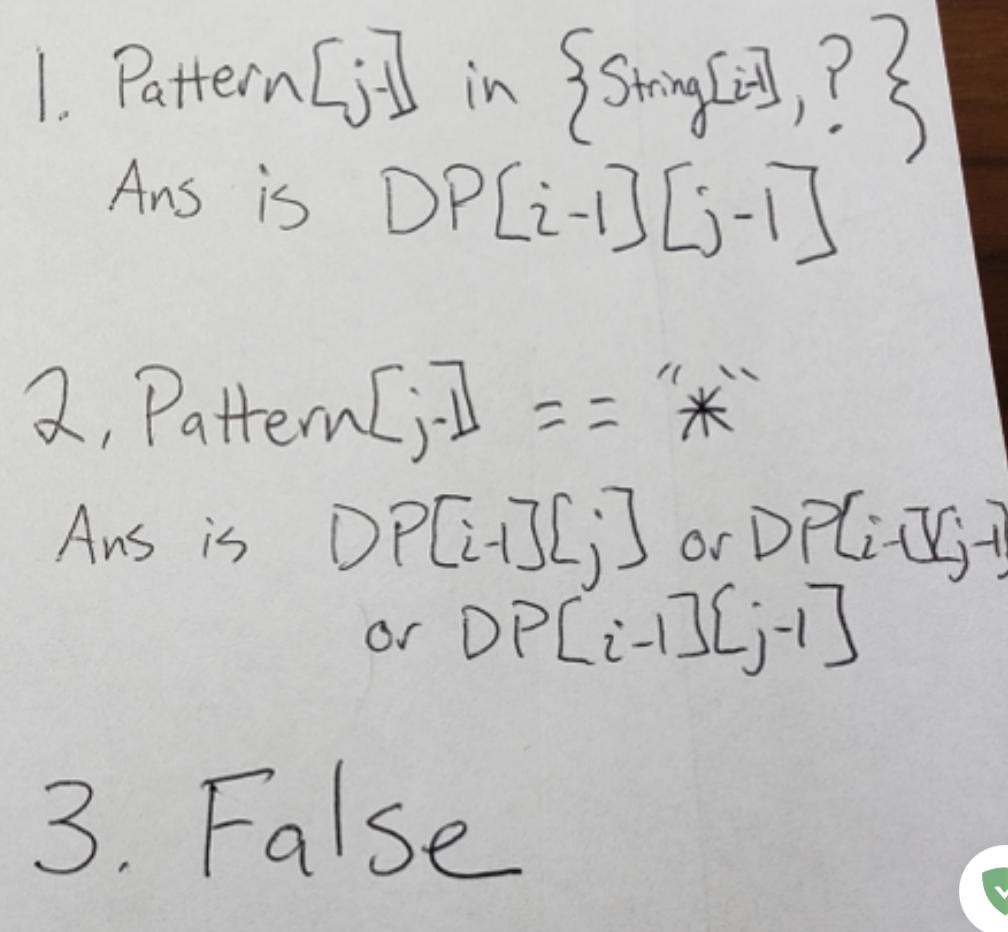 1. Pattern[j-1] in {String[i-1], ?}
Ans is DP[i-1][j-1]
2. Pattern[j-1] == "*"
Ans is DP[i-1][j] or DP[i-1][j-1]
or DP[i-1][j-1]
3. False